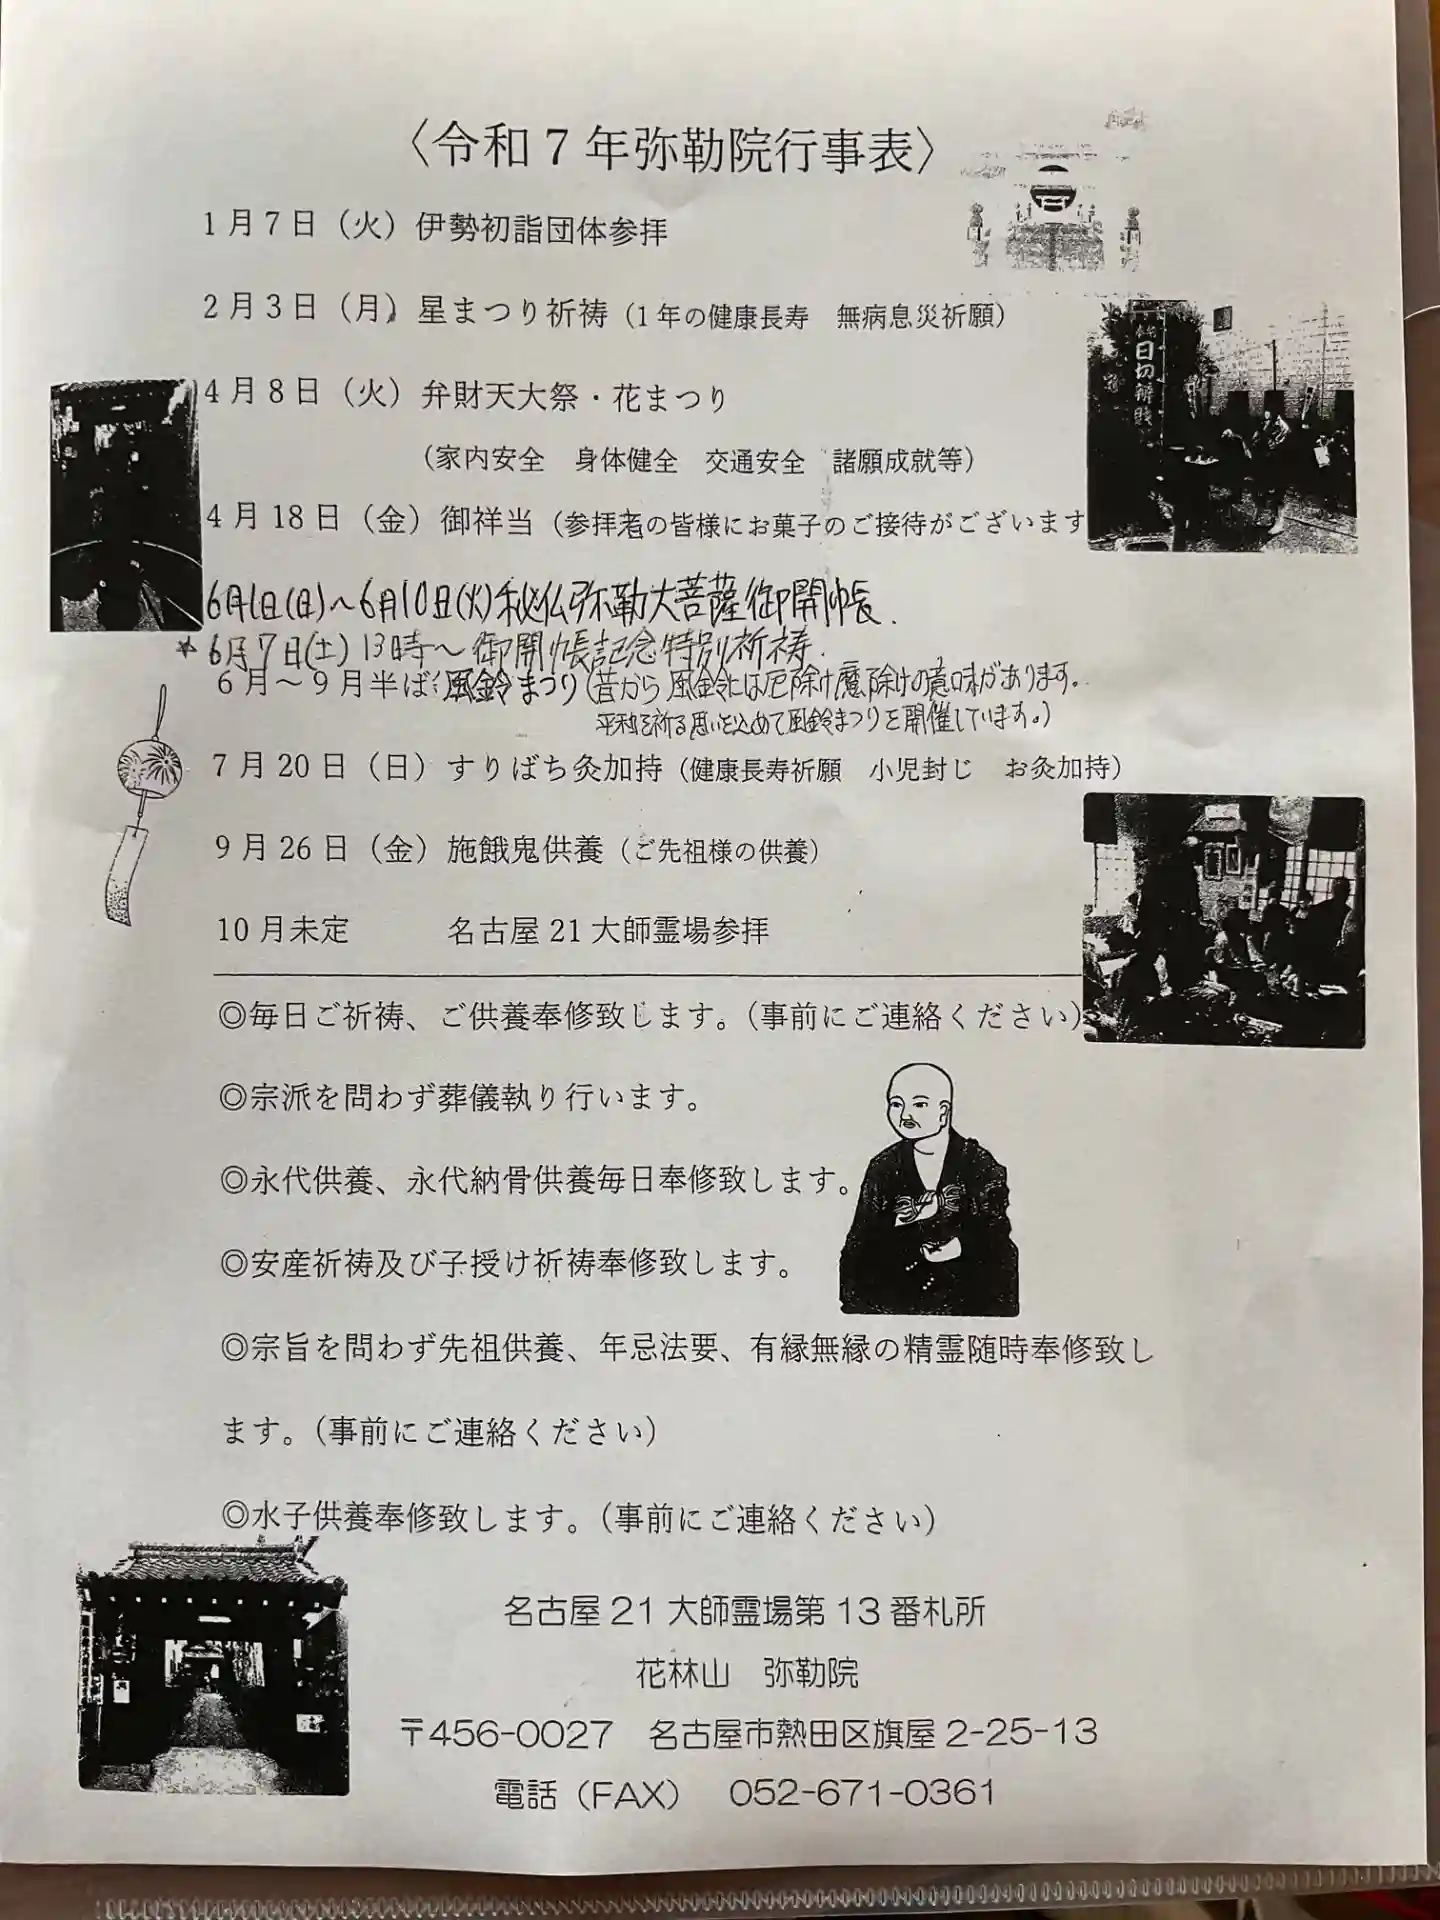 〈令和７年弥勒院行事表〉
1月7日（火）伊勢初詣団体参拝
2月3日（月）星まつり祈祷（1年の健康長寿　無病息災祈願）
4月8日（火）弁財天大祭・花まつり
（家内安全　身体健全　交通安全　諸願成就等）
4月18日（金）御祥当（参拝者の皆様にお菓子のご接待がございます
6月1日(日)～6月10日(火)秘仏弥勒大菩薩御開帳.
★6月7日(土)13時～御開帳記念特別祈祷.
6月～9月半ば 風鈴まつり(昔から風鈴には厄除け魔除けの意味があります。
平和を祈る思いを込めて風鈴まつりを開催しています。)
7月20日（日）すりばち灸加持（健康長寿祈願　小児封じ　お灸加持）
9月26日（金）施餓鬼供養（ご先祖様の供養）
10月未定　　　名古屋21大師霊場参拝
◎毎日ご祈祷、ご供養奉修致します。（事前にご連絡ください）
◎宗派を問わず葬儀執り行います。
◎永代供養、永代納骨供養毎日奉修致します。
◎安産祈祷及び子授け祈祷奉修致します。
◎宗旨を問わず先祖供養、年忌法要、有縁無縁の精霊随時奉修致し
ます。（事前にご連絡ください）
◎水子供養奉修致します。（事前にご連絡ください）
名古屋21大師霊場第13番札所
花林山　弥勒院
〒456-0027　名古屋市熱田区旗屋2-25-13
電話（FAX）　052-671-0361